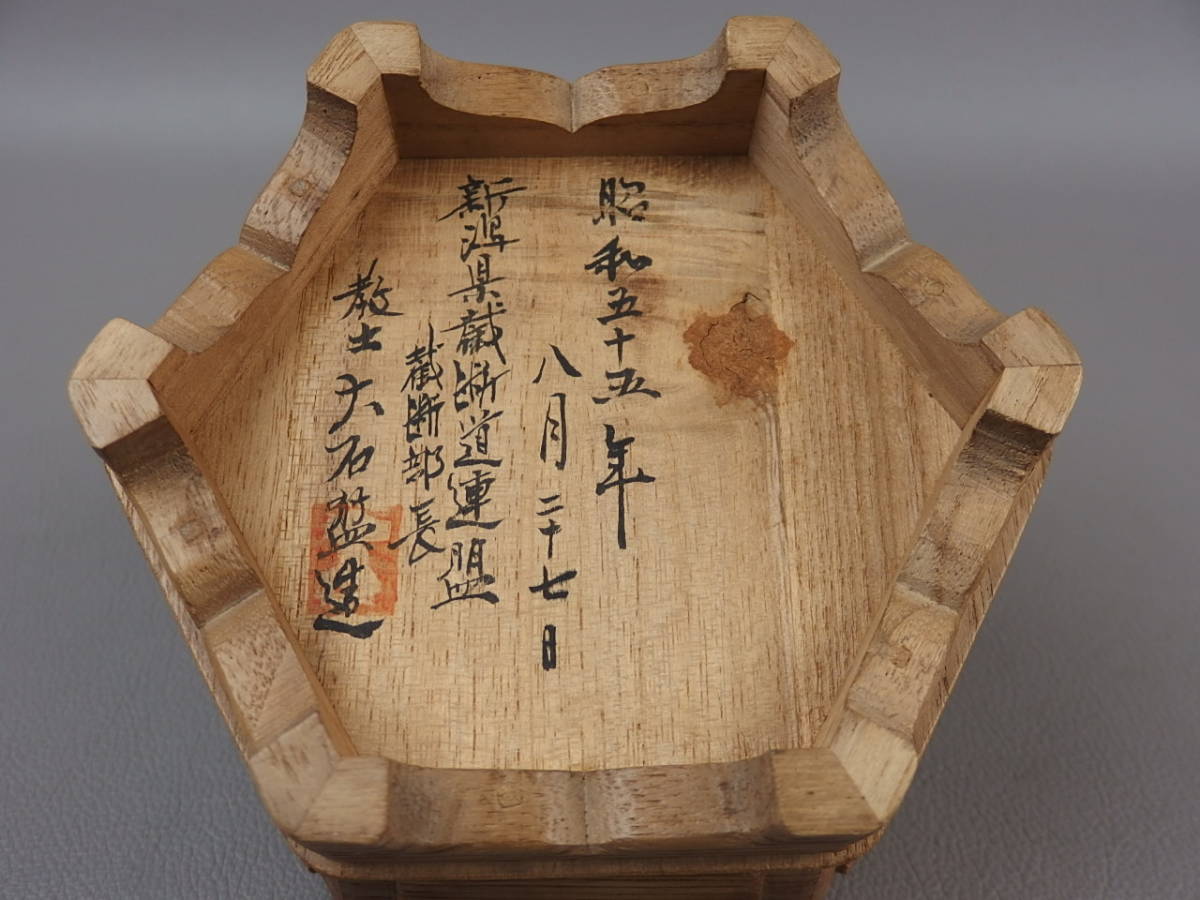 昭和五十五年
八月二十七日
新潟県截断道連盟
截断部長
教士大石益造